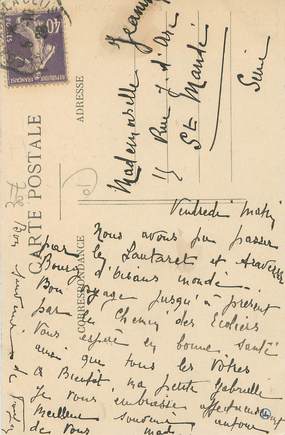 40
RÉPUBLIQUE FRANÇAISE
CARTE POSTALE
ADRESSE
CORRESPONDANCE
Mademoiselle Jeanne
Rue J. d'Arc
St Mandé
Seine
Vendredi matin
Nous avons pu passer
par le Lautaret et traverser
Bourg d'Oisans inondé.
Bon voyage jusqu'à présent
par le Chemin des Ecoliers
Vous espère en bonne santé
ainsi que tous les vôtres
A Bientôt, ma petite Gabrielle
Je vous embrasse affectueusement
Meilleur souvenir autour
de vous
Bon